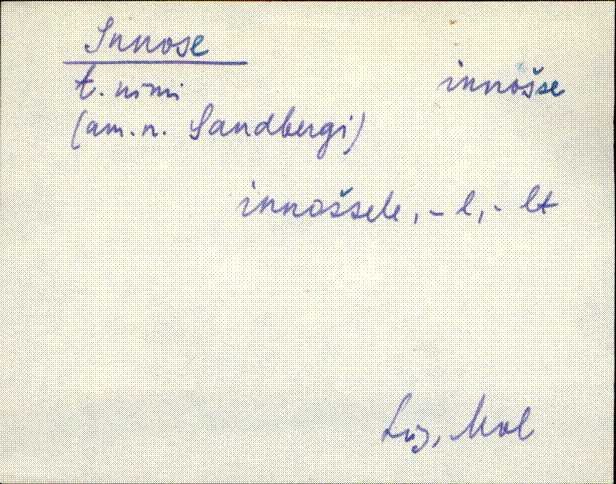 Innose
t. nimi
innošse
(am. n. Sandbergi)
innoššele, - l, - lt
Lüg, Mol